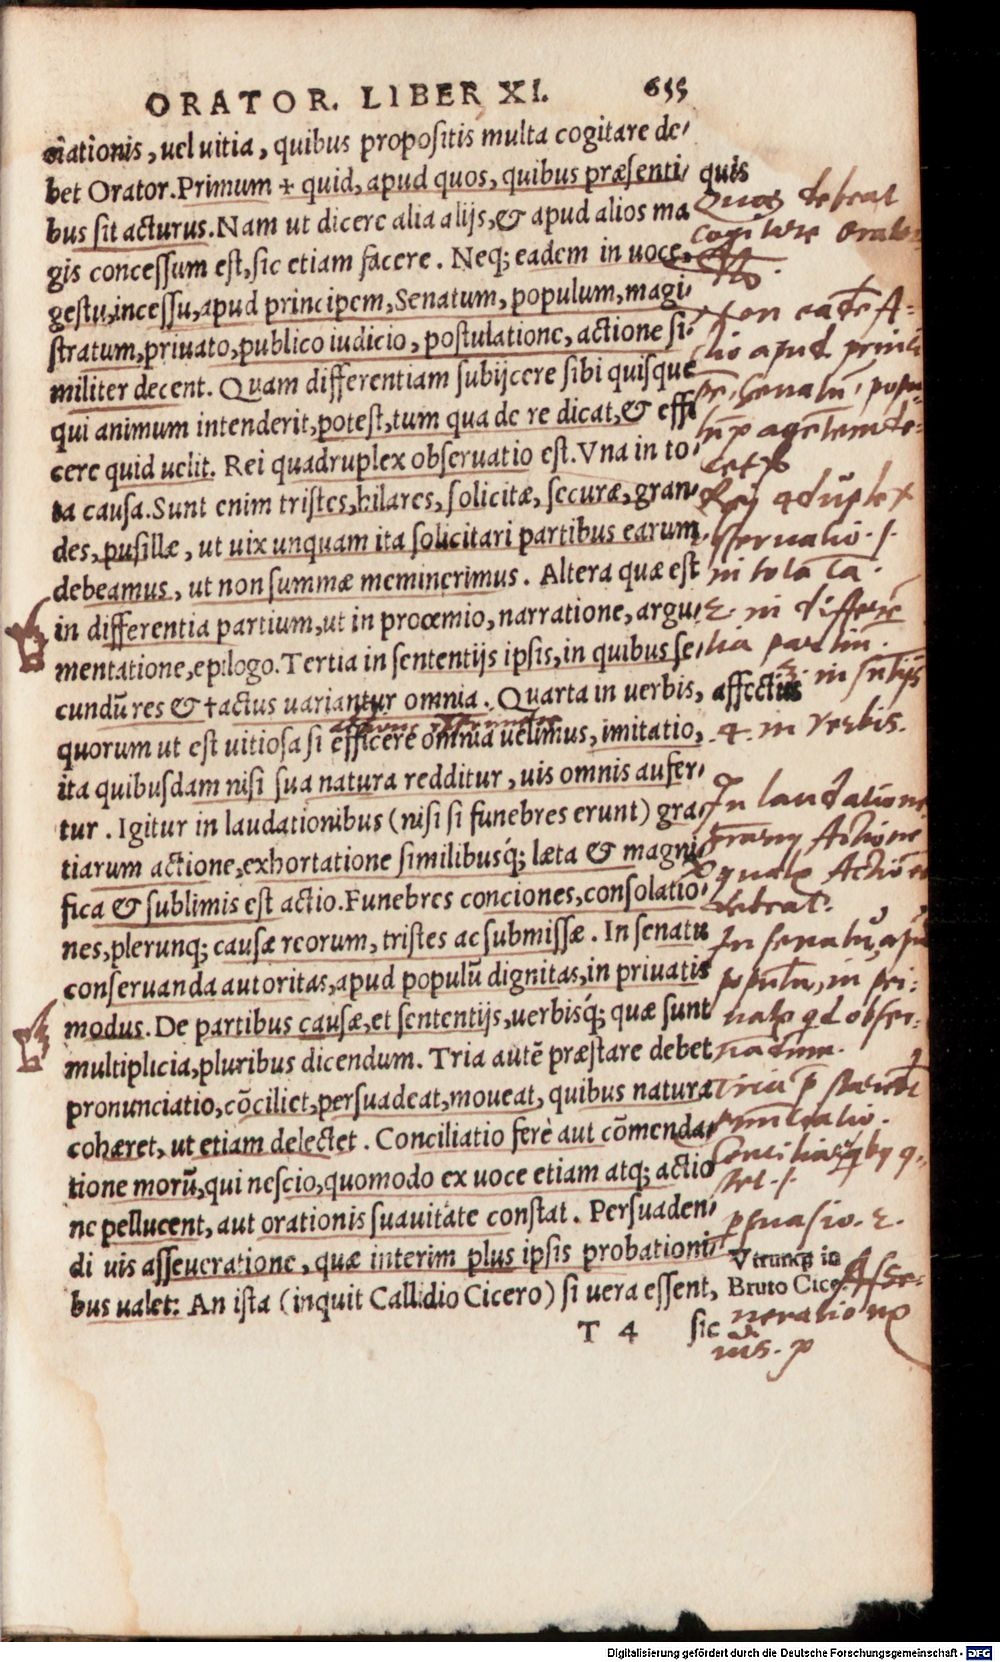 ORATOR. LIBER XI. 655
ciationis, uel uitia, quibus propositis multa cogitare de/
bet Orator. Primum + quid, apud quos, quibus præsenti/
quis
bus sit acturus. Nam ut dicere alia alijs, & apud alios ma
gis concessum est, sic etiam facere. Neq; eadem in uoce,
gestu, incessu, apud principem, Senatum, populum, magi/
stratum, priuato, publico iudicio, postulatione, actione si/
militer decent. Quam differentiam subijcere sibi quisque
qui animum intenderit, potest, tum qua de re dicat, & effi
cere quid uelit. Rei quadruplex obseruatio est. Vna in to/
ta causa. Sunt enim tristes, hilares, solicitæ, securæ, gran/
des, pusillæ, ut uix unquam ita solicitari partibus earum
debeamus, ut non summæ meminerimus. Altera quæ est
in differentia partium, ut in proœmio, narratione, argu/
mentatione, epilogo. Tertia in sententijs ipsis, in quibus se/
cundũ res & †actus uariantur omnia. Quarta in uerbis,
affectus
quorum ut est uitiosa si efficere omnia uelimus, imitatio,
ita quibusdam nisi sua natura redditur, uis omnis aufer/
tur. Igitur in laudationibus (nisi si funebres erunt) gra/
tiarum actione, exhortatione similibusq́; læta & magni/
fica & sublimis est actio. Funebres conciones, consolatio/
nes, plerunq; causæ reorum, tristes ac submissæ. In senatu
conseruanda autoritas, apud populũ dignitas, in priuatis
modus. De partibus causæ, et sententijs, uerbisq́; quæ sunt
multiplicia, pluribus dicendum. Tria autẽ præstare debet
pronunciatio, cõciliet, persuadeat, moueat, quibus natura
cohæret, ut etiam delectet. Conciliatio ferè aut cõmenda/
tione morũ, qui nescio, quomodo ex uoce etiam atq; actio
ne pellucent, aut orationis suauitate constat. Persuaden/
di uis asseueratione, quæ interim plus ipsis probationi/
bus ualet: An ista (inquit Callidio Cicero) si uera essent,
Vtrunq; in
Bruto Cice.
T 4 sic
Quos debeat
cogitare Orator
apud
in tota cã.
2. in differẽ
tia partiũ.
3. in sñtijs
4. in verbis.
In laudatione
debeat.
In senatu, apud
populũ, in pri-
persuasio. 2.
Asse-
neratio